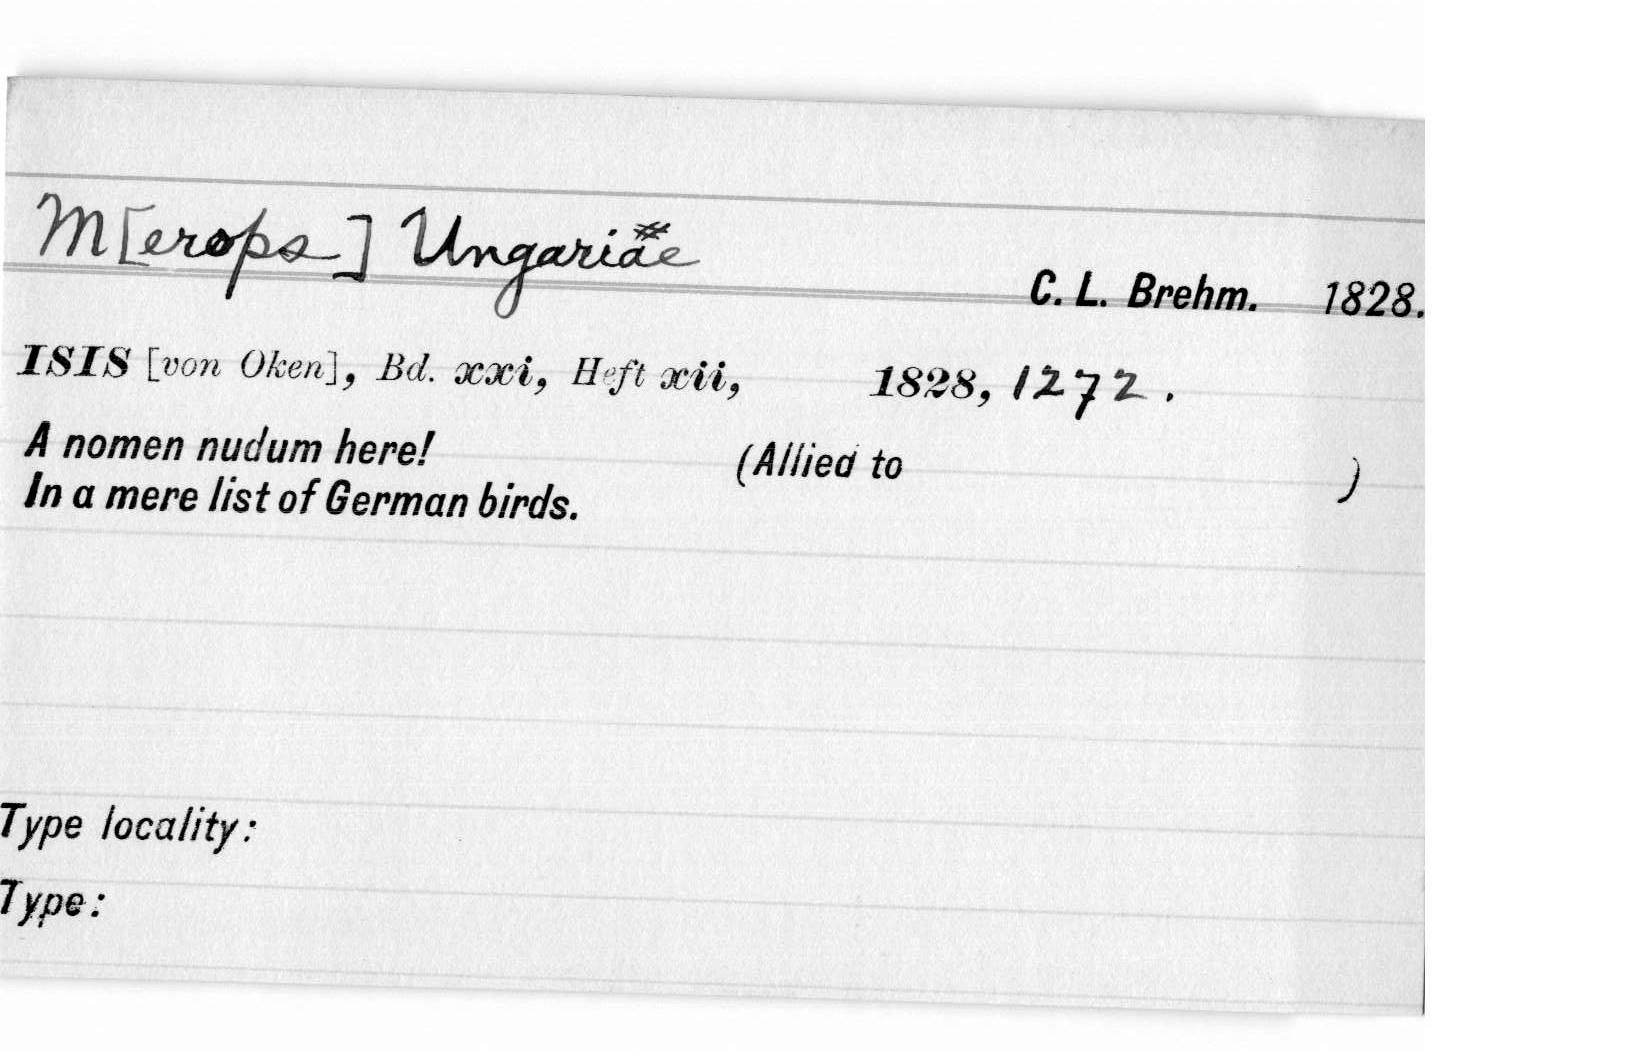 M[erops] Ungariae
C. L. Brehm. 1828.
ISIS [von Oken], Bd. xxi, Heft xii, 1828, 1272.
A nomen nudum here! (Allied to )
In a mere list of German birds.
Type locality:
Type: